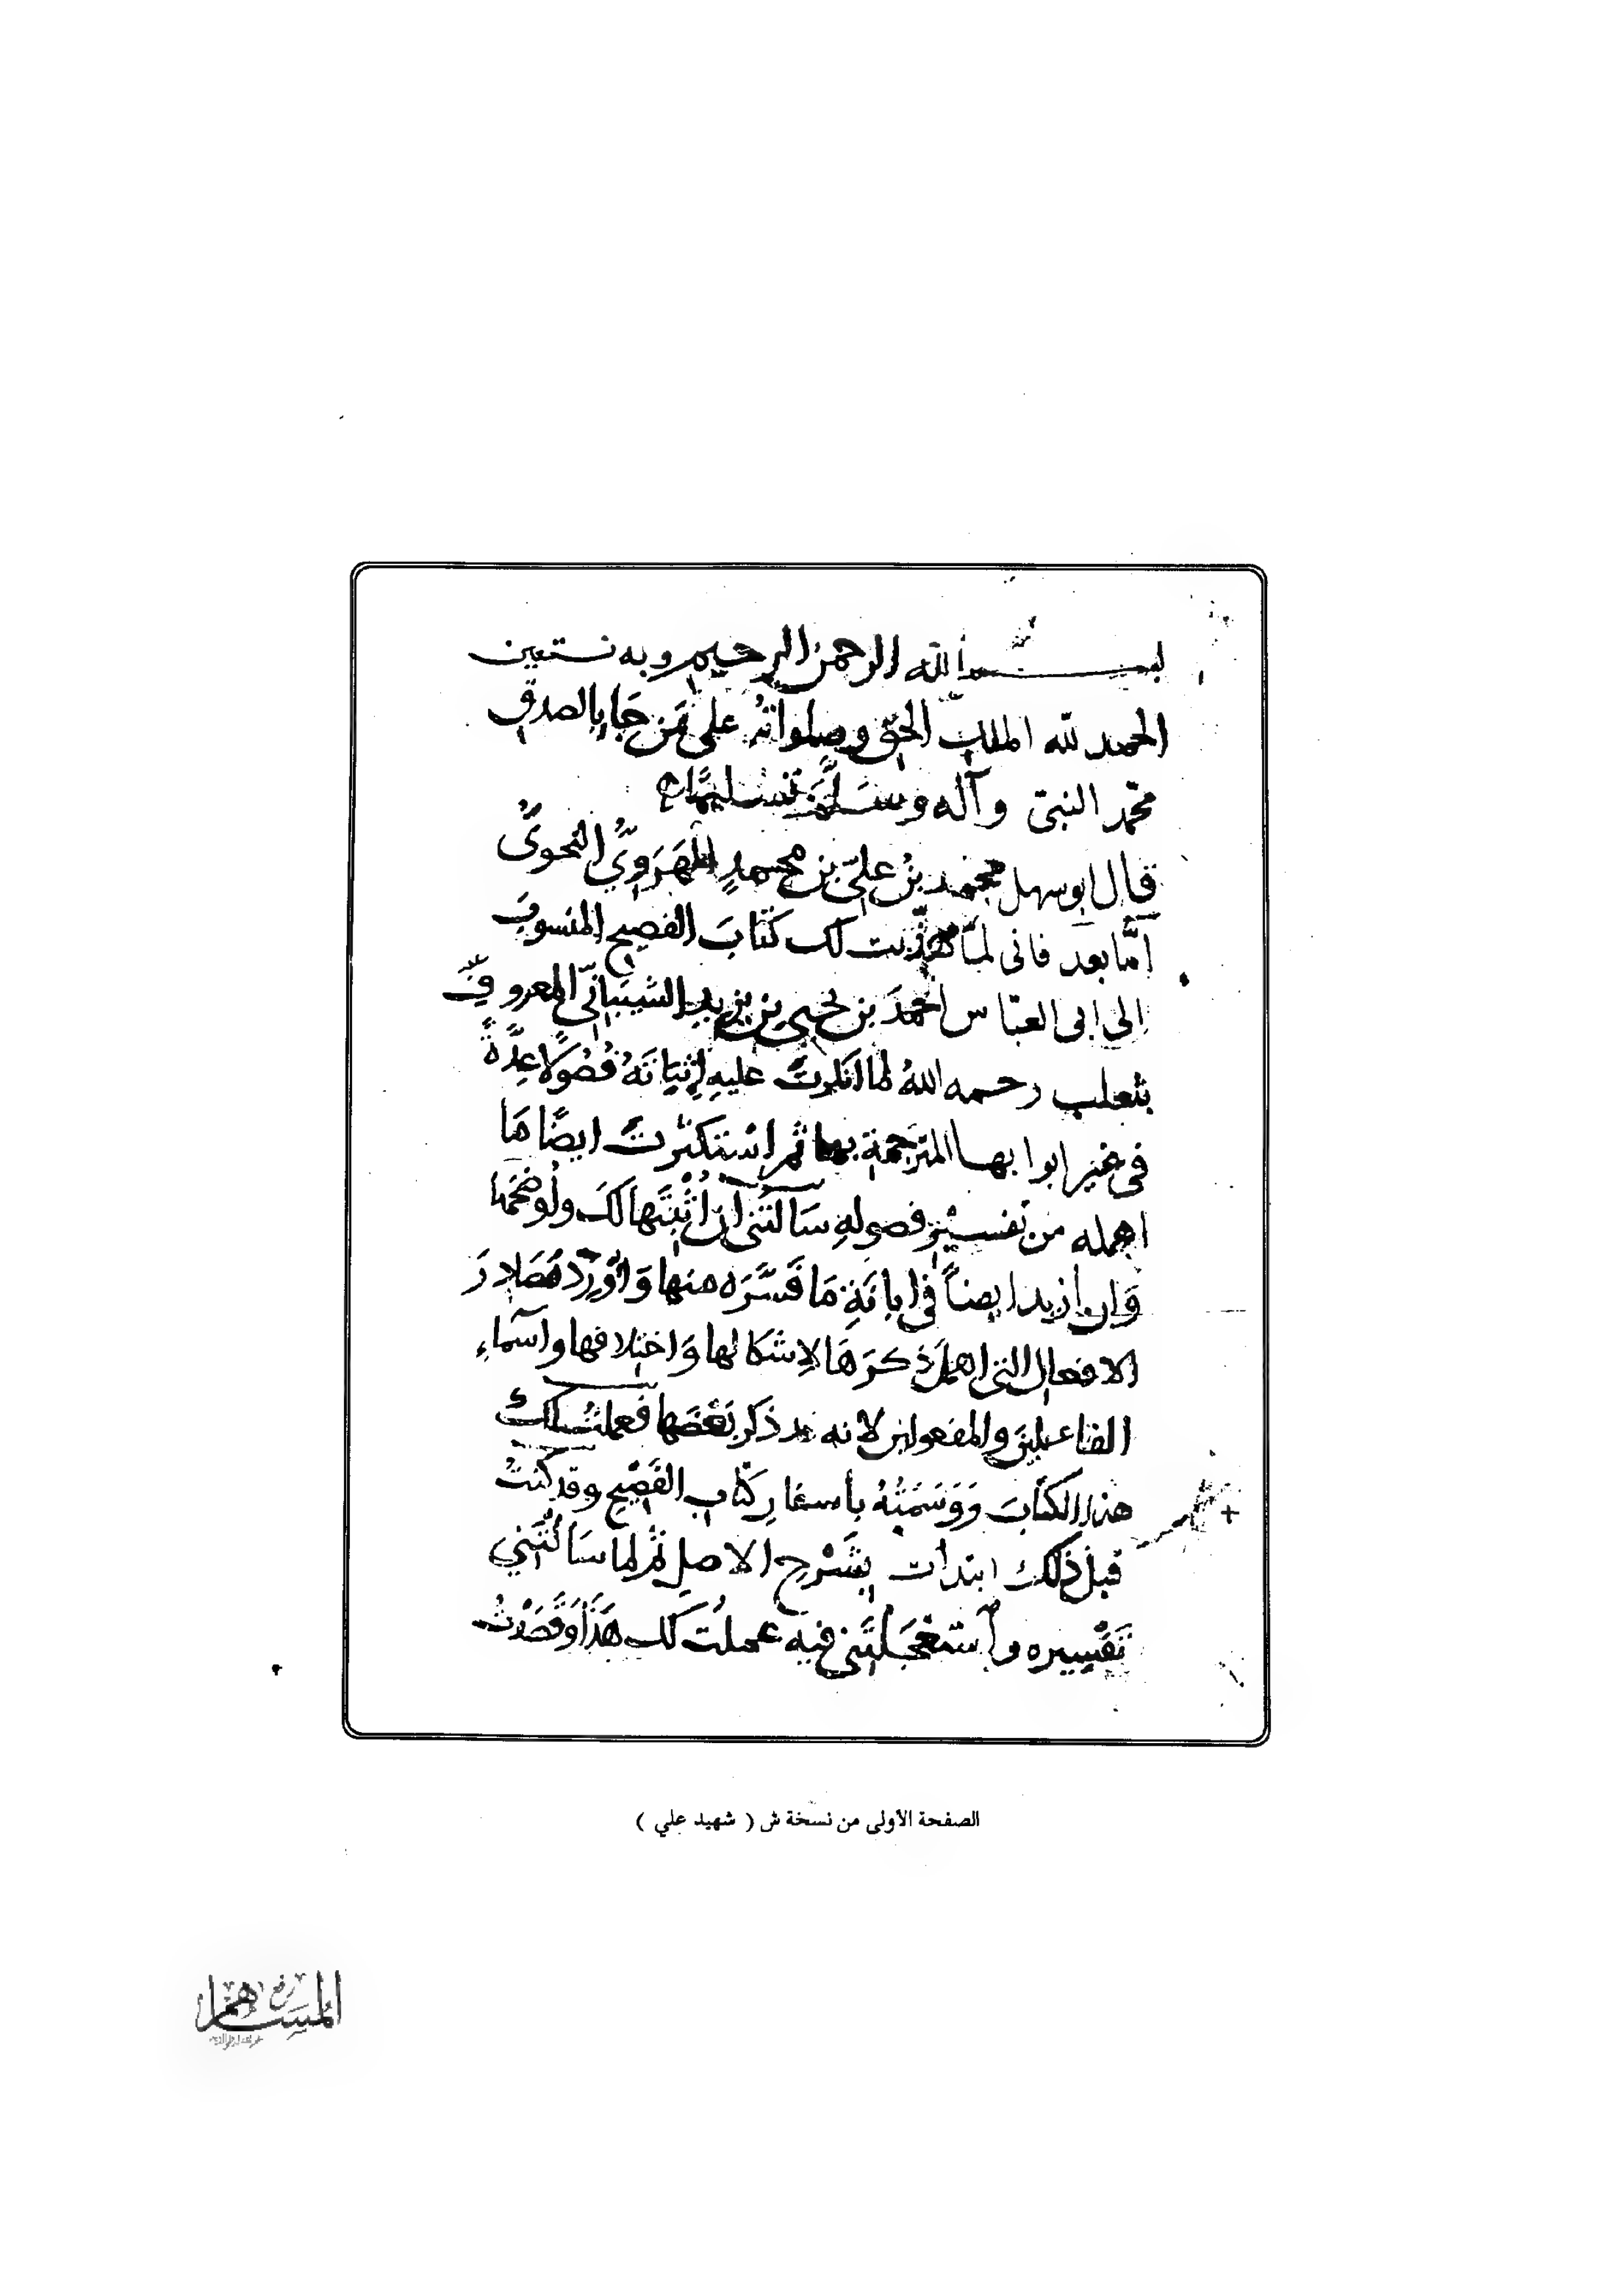 بسم الله الرحمن الرحيم وبه نستعين
الحمد لله الملك الحق وصلواته على من جا بالصدق
محمد النبي وآله وسلم تسليما
قال ابو سهل محمد بن علي بن محمد الهروي النحوي
اما بعد فاني لما هذبت لك كتاب الفصيح المنسوب
الى ابى العباس احمد بن يحيى بن يزيد الشيباني المعروف
بثعلب رحمه الله لما انكرت عليه اتيانه فصولا عدة
في غير ابوابها المترجمة بها ثم استكثرت ايضا ما
اهمله من تفسير فصوله سالتني ان اثبتها لك واوضحها
وان ازيد ايضا في ابانة ما فسره منها واورد مصادر
الافعال التي اهمل ذكرها لاشكالها واختلافها واسماء
الفاعلين والمفعولين لانه قد ذكر بعضها فعملت لك
هذا الكتاب ووسمته بأسفار كتاب الفصيح وقد كنت
قبل ذلك ابتدأت بشرح الاصل ثم لما سالتني
تفسيره واستعجلتني فيه عملت لك هذا وقصدت
الصفحة الأولى من نسخة ش ( شهيد علي )